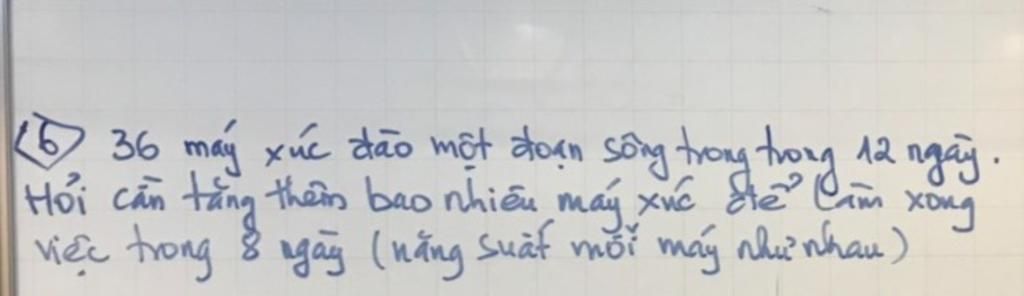 6 36 máy xúc đào một đoạn sông trong trong 12 ngày.
Hỏi cần tăng thêm bao nhiêu máy xúc để làm xong
việc trong 8 ngày (năng suất mỗi máy như nhau)